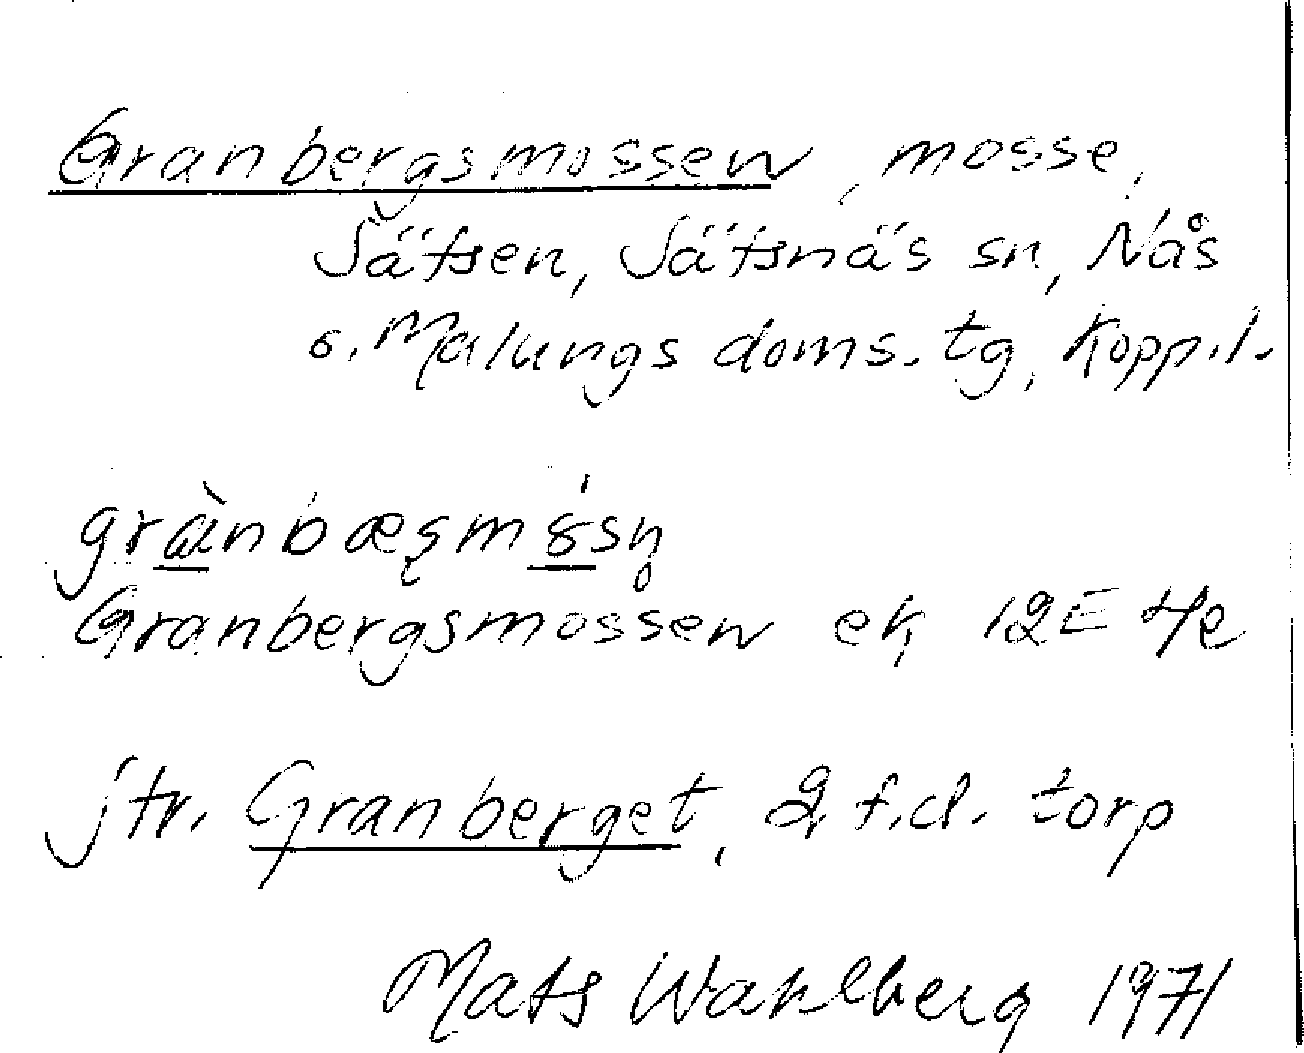 Granbergsmossen, mosse,
Jätsen, Jätsnäs sn, Nås
o. Malungs doms. tg, Kopp.l.
Granbergsmossen ek 12E 4e
jfr. Granberget, 2 f.d. torp
Mats Wahlberg 1971